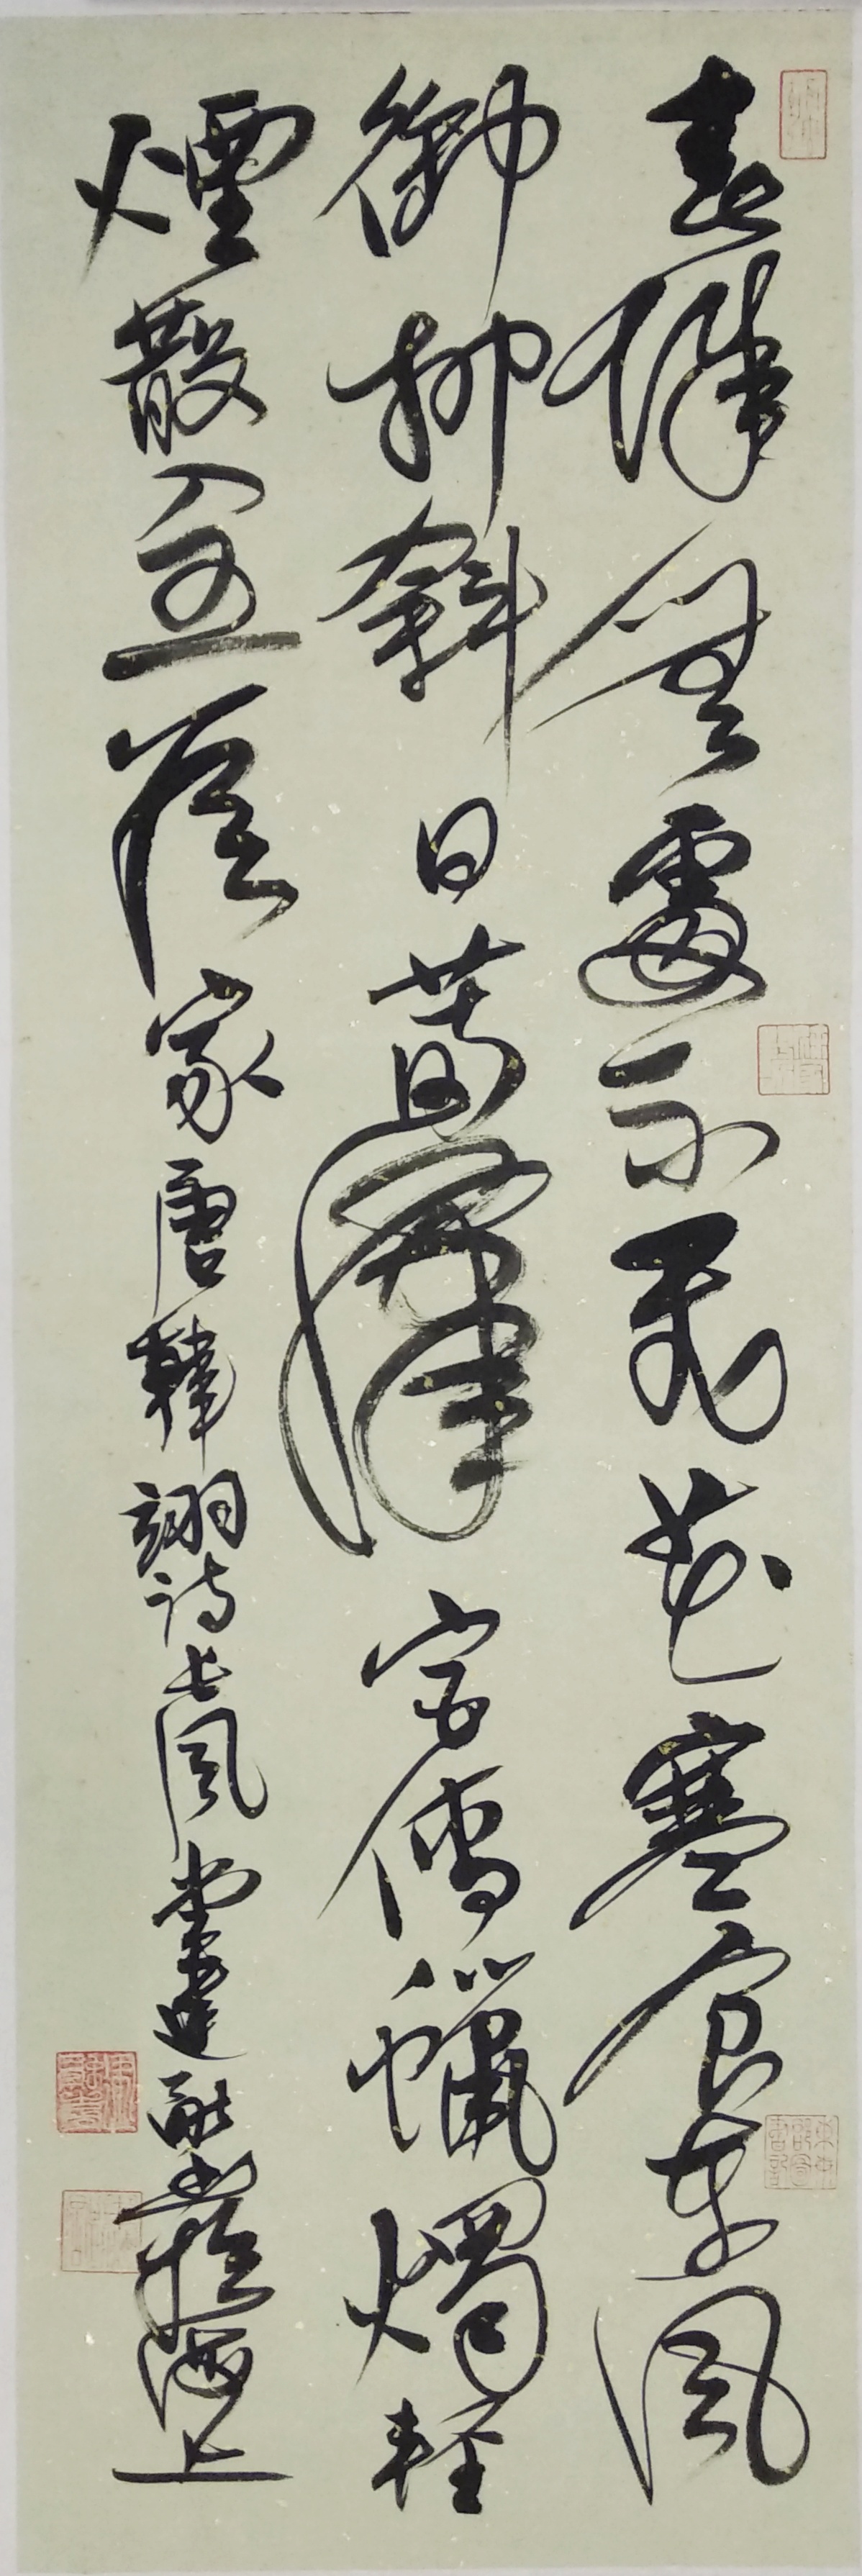 春城無處不飛花寒食東風
御柳斜日暮漢宮傳蠟燭輕
煙散入五侯家唐韓翃詩長風堂建融書於海上